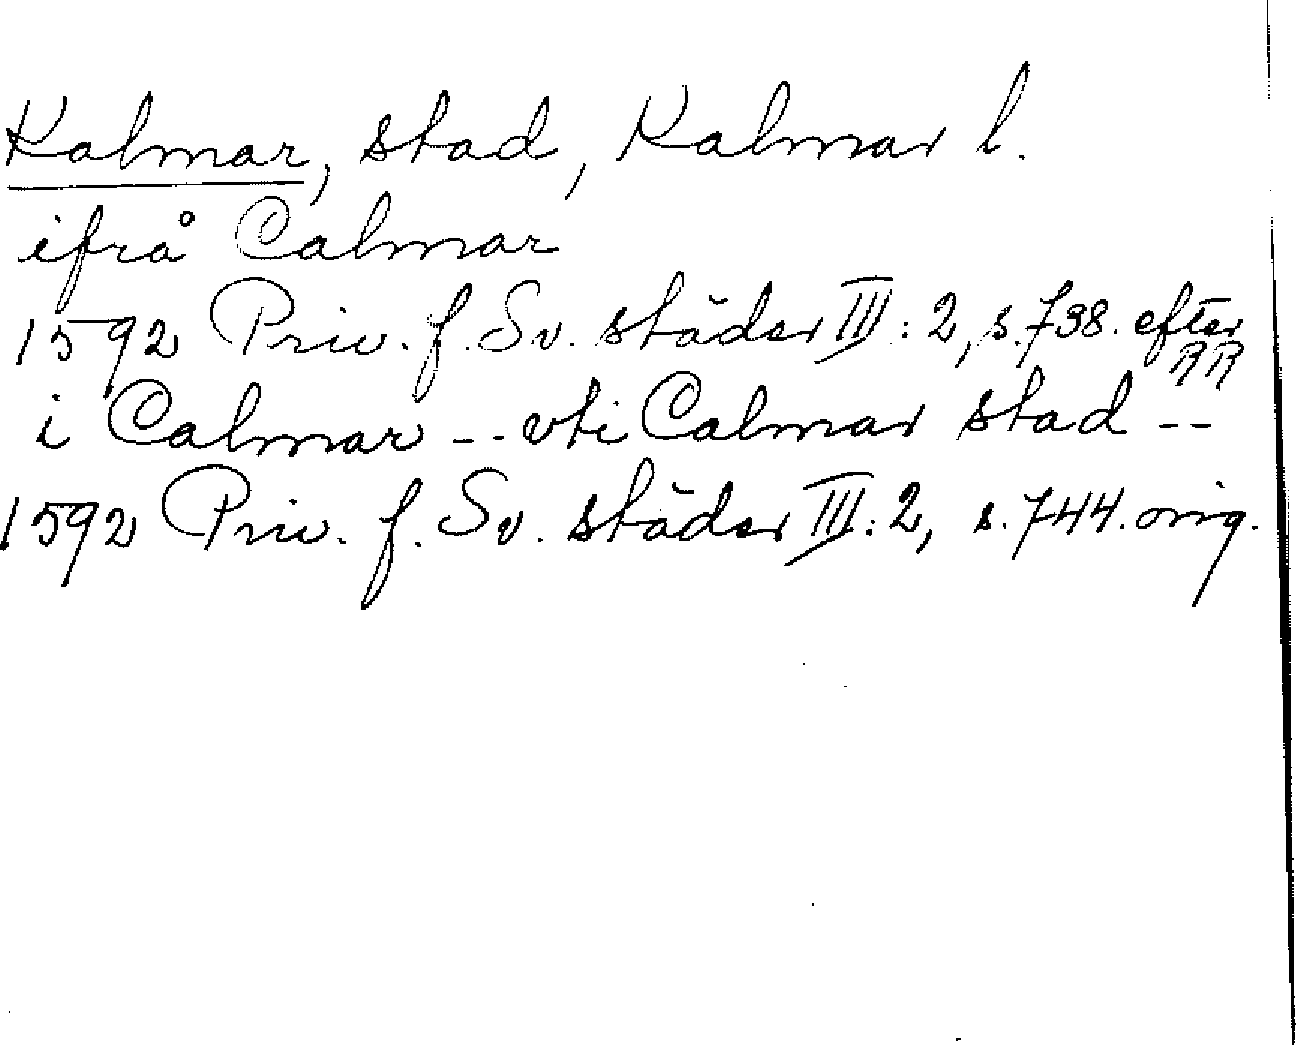 Kalmar, stad, Kalmar l.
ifrå Calmar
1592 Priv. f. Sv. städer III: 2, s. 738. efter RR
i Calmar -- vti Calmar stad --
1592 Priv. f. Sv. städer III: 2, s. 744. orig.